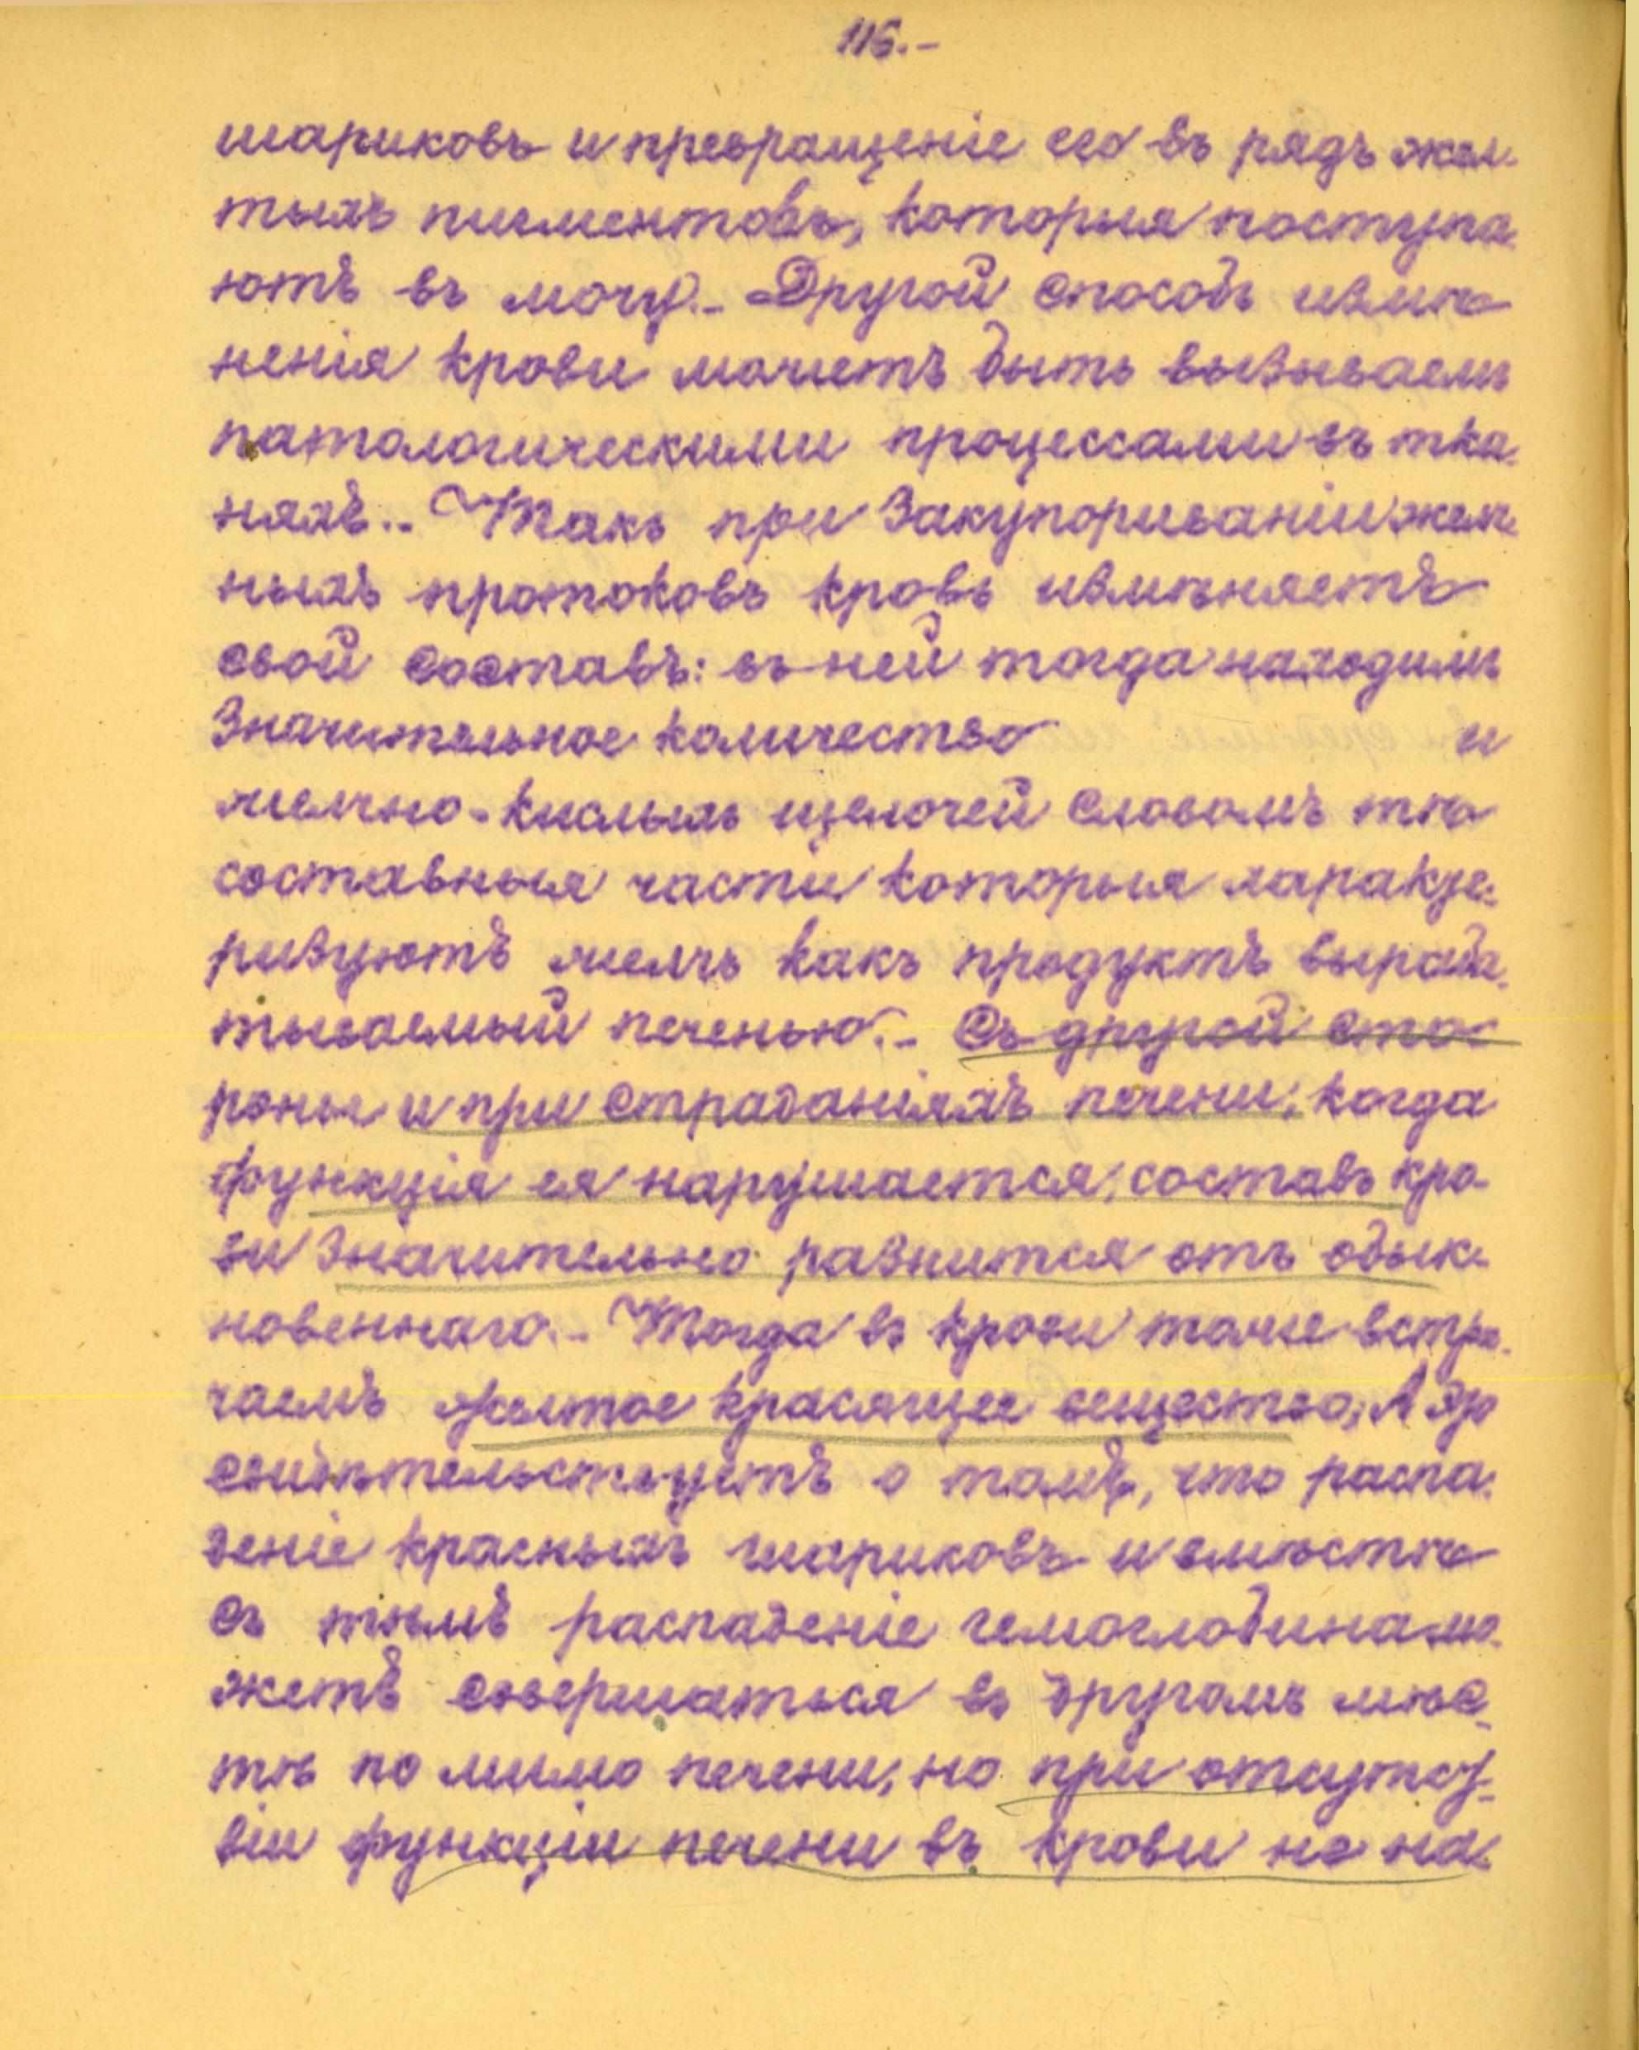 116.-
шариковъ и превращеніе его въ рядъ жел-
тыхъ пигментовъ, которыя поступа-
ютъ въ мочу.- Другой способъ измѣ-
ненія крови можетъ быть вызываемъ
патологическими процессами въ тка-
няхъ.. Такъ при закупориваніи желч-
ныхъ протоковъ кровь измѣняетъ
свой составъ: въ ней тогда находимъ
значительное количество и
желчно-кислыхъ щелочей словомъ тѣ
составныя части которыя характе-
ризуютъ желчь какъ продуктъ вырабa-
тываемый печенью.- Съ другой сто-
роны и при страданіяхъ печени, когда
функція ея нарушается, составъ кро-
ви значительно разнится отъ обык-
новеннаго.- Тогда въ крови тоже встрѣ-
чаемъ желтое красящее вещество; А это
свидѣтельствуетъ о томъ, что распа-
деніе красныхъ шариковъ и вмѣстѣ
съ тѣмъ распаденіе гемоглобина мо-
жетъ совершаться въ другомъ мѣс-
тѣ по мимо печени, но при отсутст-
віи функціи печени въ крови не на-